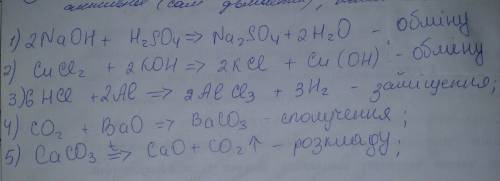 1) 2NaOH + H₂SO₄ => Na₂SO₄ + 2H₂O - обміну
2) CuCl₂ + 2KOH => 2KCl + Cu(OH)² - обміну
3) 6HCl + 2Al => 2AlCl₃ + 3H₂ - заміщення;
4) CO₂ + BaO => BaCO₃ - сполучення;
5) CaCO₃ t=> CaO + CO₂↑ - розкладу;